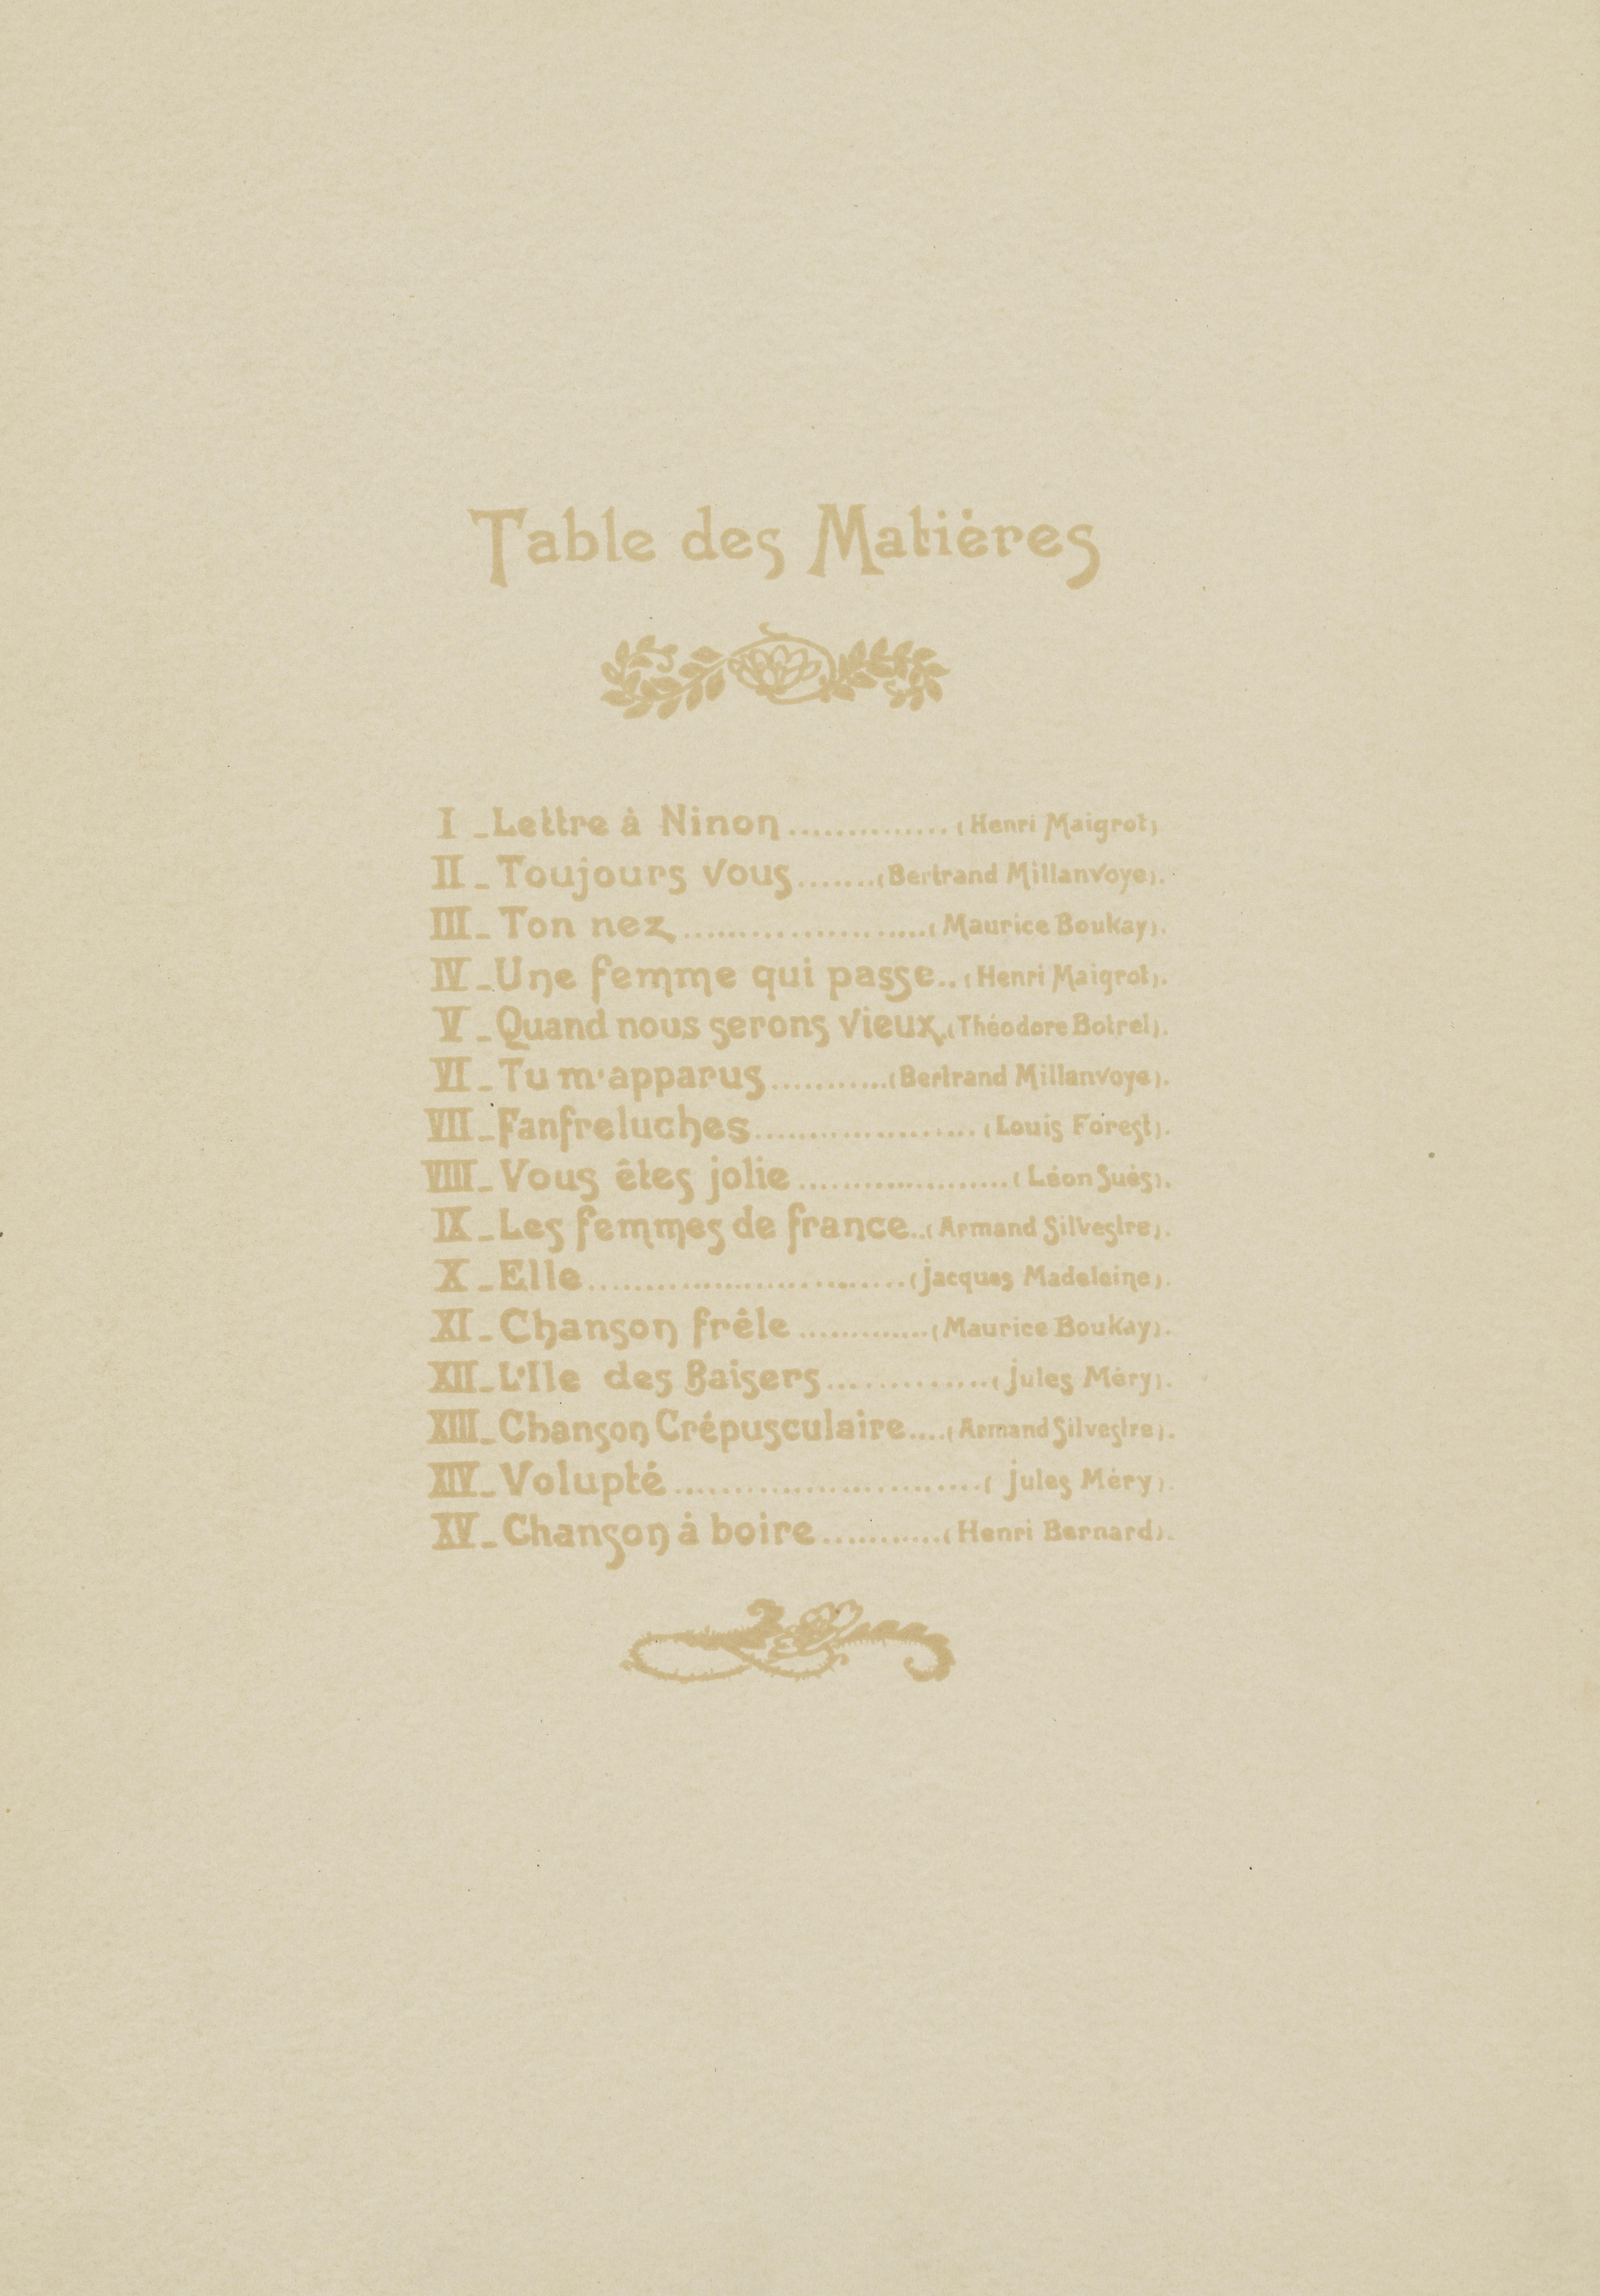 Table des Matières
I _ Lettre à Ninon .............. (Henri Maigrot)
II _ Toujours vous.......(Bertrand Millanvoye).
III _ Ton nez......................(Maurice Boukay).
IV _ Une femme qui passe..(Henri Maigrot).
V _ Quand nous serons vieux.(Théodore Botrel).
VI _ Tu m'apparus...........(Bertrand Millanvoye).
VII _ Fanfreluches....................(Louis Forest).
VIIII _ Vous êtes jolie ...................(Léon Suès).
IX _ Les femmes de france..(Armand Silvestre).
X _ Elle............................(Jacques Madeleine).
XI _ Chanson frêle ............(Maurice Boukay).
XII _ L'Ile des Baisers..............(Jules Méry).
XIII _ Chanson Crépusculaire....(Armand Silvestre).
XIV _ Volupté ...........................( Jules Méry).
XV _ Chanson à boire...........(Henri Bernard).